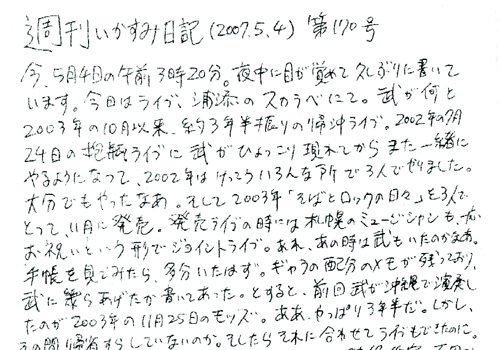 週刊いかすみ日記(2007.5.4) 第170号
今、5月4日の午前3時20分。夜中に目が覚めて久しぶりに書いて
います。今日はライブ、浦添のスカラベにて。武が何と
2003年の10月以来、約3年半振りの帰沖ライブ。2002年の7月
24日の抱瓶ライブに武がひょっこり現れてからまた一緒に
やるようになって、2002年はけっこういろんな所で3人でやりました。
大分でもやったなあ。そして2003年「そばとロックの日々」を3人で
とって、11月に発売。発売ライブの時には札幌のミュージシャンも
お祝いという形でジョイントライブ。あれ、あの時は武もいたのかなあ。
手帳を見てみたら、多分いたはず。ギャラの配分のメモが残っており、
武に幾らあげたか書いてあった。とすると、前回武が沖縄で演奏し
たのが2003年の11月25日のモッズ。ああ、やっぱり3年半だ。しかし、
その間帰省すらしていないのか。そしたらそれに合わせてライブもできたのに。